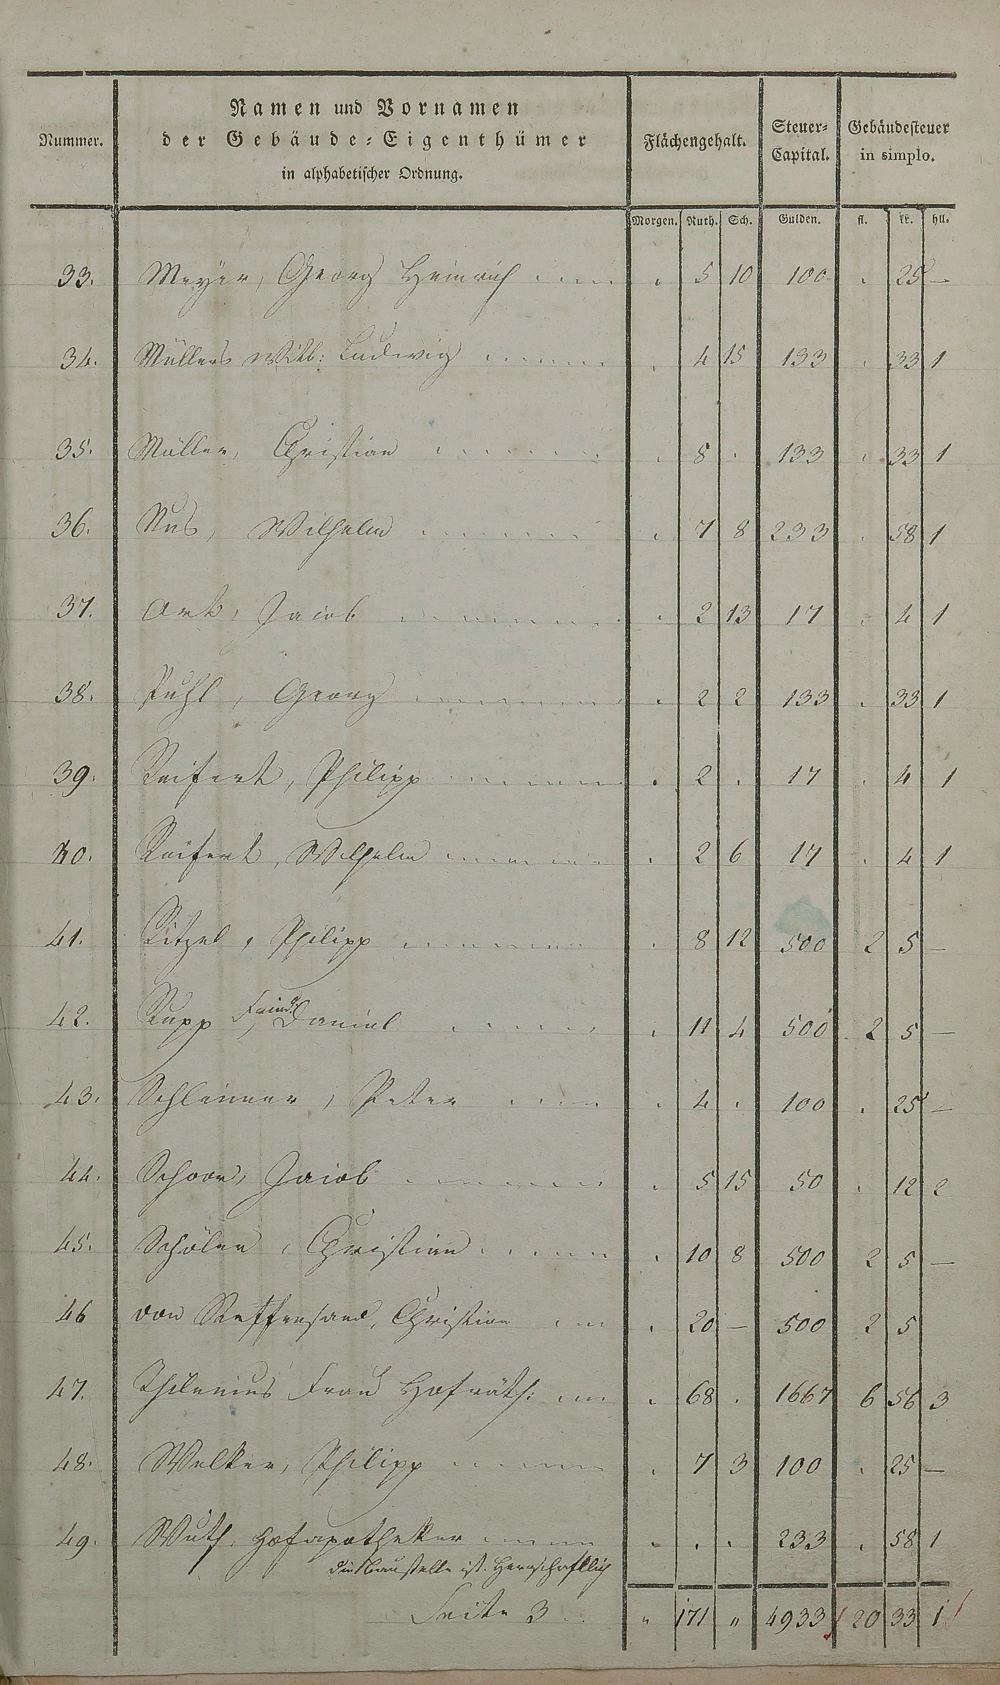 Nummer.
Namen und Vornamen
der Gebäude-Eigenthümer
in alphabetischer Ordnung.
Flächengehalt.
Steuer-
Capital.
Gebäudesteuer
in simplo.
Morgen. Ruth. Sch. Gulden. fl. kr. hll.
33. Meyer, Georg Heinrich . 5 10 100 . 25 —
34. Müllers Witb: Ludwig . 4 15 133 . 33 1
35. Müller, Christian . 8 . 133 . 33 1
36. Nus, Wilhelm . 7 8 233 . 58 1
37. Ort, Jacob . 2 13 17 . 4 1
38. Puhl, Georg . 2 2 133 . 33 1
39. Reifert, Philipp . 2 . 17 . 4 1
40. Reifert, Wilhelm . 2 6 17 . 4 1
41. Ritzel, Philipp . 8 12 500 2 5 —
42. Rupp, Daniel . 11 4 500 2 5 —
43. Schlimmer, Peter . 4 . 100 . 25 —
44. Schoor, Jacob . 5 15 50 . 12 2
45. Schöler, Christian . 10 8 500 2 5 —
46 von Christian . 20 — 500 2 5
47. Thilenius Frau Hofräth: . 68 . 1667 6 56 3
48. Welker, Philipp . 7 3 100 . 25 —
49. Wuth, Hofapotheker . . . 233 . 58 1
die Baustelle ist Herrschaftlich
Seite 3 . . " 171 " 4933 20 33 1